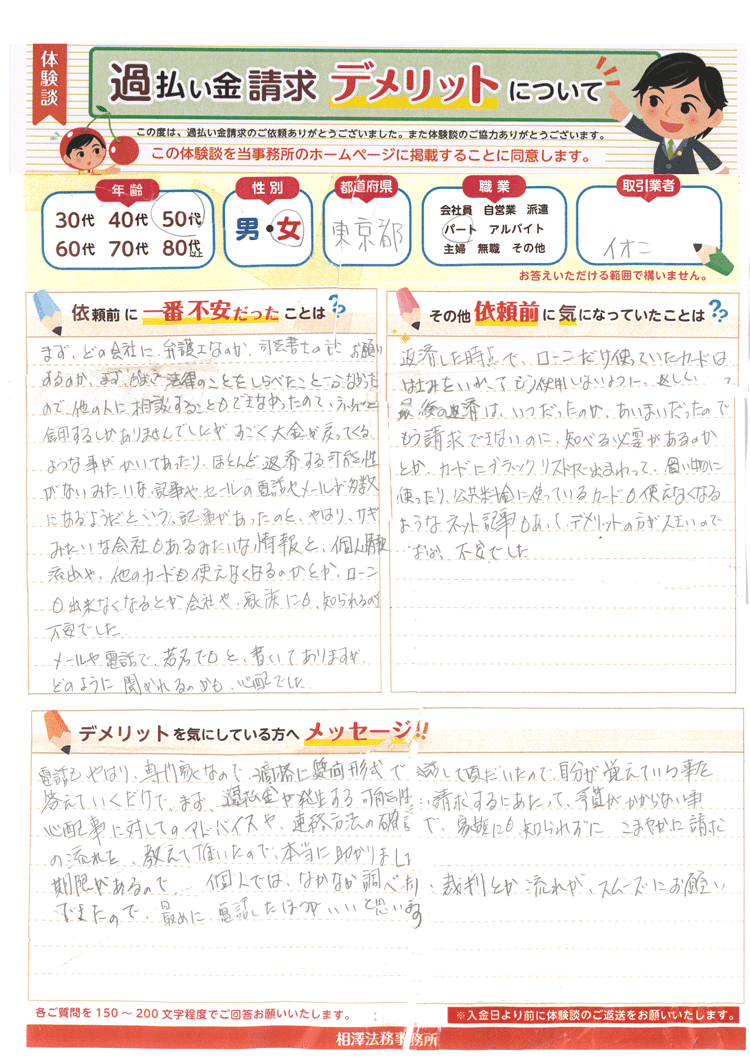 体験談
過払い金請求 デメリットについて
この度は、過払い金請求のご依頼ありがとうございました。また体験談のご協力ありがとうございます。
この体験談を当事務所のホームページに掲載することに同意します。
年齢
30代 40代 50代
60代 70代 80代以上
性別
男・女
都道府県
東京都
職業
会社員 自営業 派遣
パート アルバイト
主婦 無職 その他
取引業者
イオン
お答えいただける範囲で構いません。
依頼前に一番不安だったことは??
まず、どの会社に、弁護士なのか、司法書士の方に お願い
するのか、まず、法律のことをしらべたこと一らなかった
ので、他の人に相談することもできなかったので、
信用するしかありませんでしたが すごく大金が戻ってくる
ような事がかいてあったり、ほとんど返済する可能性
がないみたいな、記事や、セールの電話やメールが多数
にあるようだという、記事があったのと、やはり、サギ
みたいな会社もあるみたいな情報と、個人情報
流出や、他のカードも使えなくなるのかとか、ローン
も出来なくなるとか会社や、家族にも、知られるのが
不安でした
メールや電話で、匿名でもと、書いてありますが
どのように聞かれるのかも、心配でした
その他依頼前に気になっていたことは??
返済した時点で、ローンだけ使っていたカードは
はさみをいれて もう使用しないように、
最後の返済は、いつだったのか、あいまいだったので
もう請求できないのに、知べる必要があるのか
とか、カードにブラックリスト 出まわって、買い物に
使ったり、公共料金に使っているカードも使えなくなる
ようなネット記事もあって、デメリットの方が 大きいので
不安でした
デメリットを気にしている方へメッセージ!!
電話も やはり、専門家なので、適格に質問形式で 話して頂だいたので、自分が覚えている事を
答えていくだけで、まず、過払金が発生する可能性 請求するにあたって、手数がかからない事
心配事に対してのアドバイスや、連絡方法の確認 で、家族にも、知られずに こまやかに請求
の流れを、教えて頂いたので、本当に助かりまし
期限があるので、… 個人では、なかなか調べた 裁判とか流れが、スムーズにお願い
できたので、最初に 電話したほうが いいと思います
各ご質問を150〜200文字程度でご回答お願いいたします。
※入金日より前に体験談のご返送をお願いいたします。
相澤法務事務所